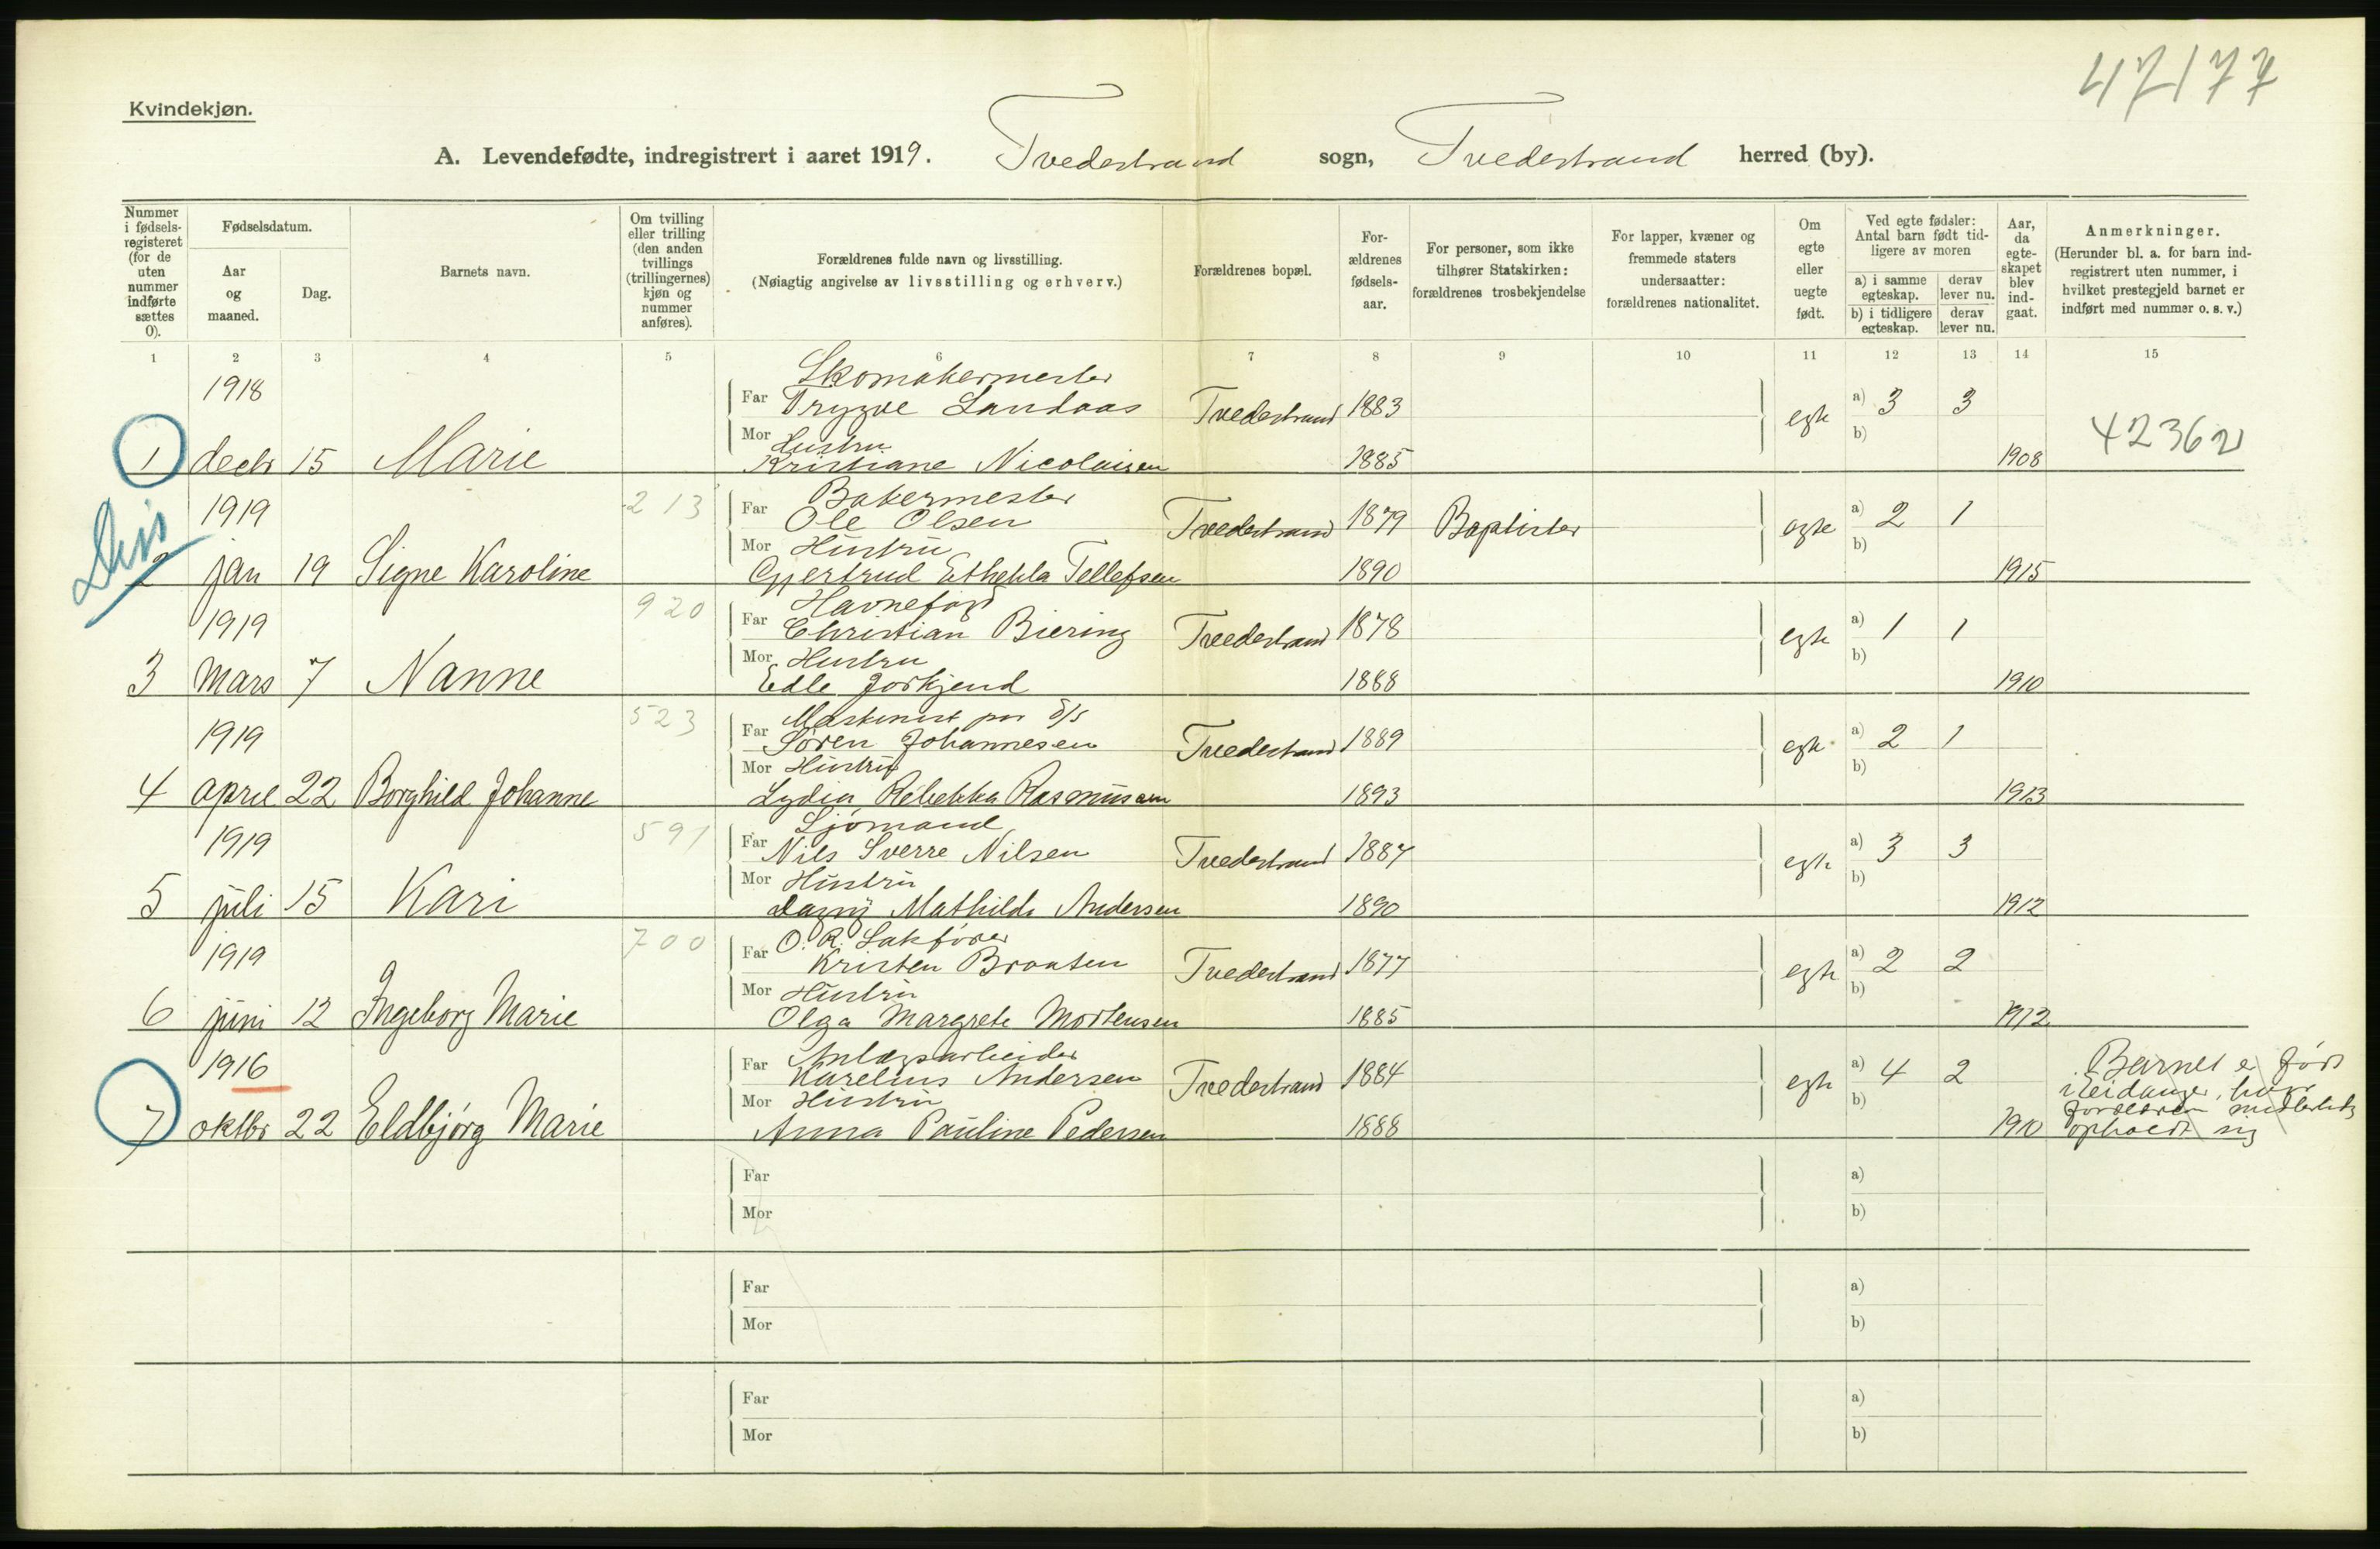 47177
Kvindekjøn.
A. Levendefødte, indregistrert i aaret 1919. Tvedestrand sogn, Tvedestrand herred (by).
Nummer i fødsels-registeret (for de uten nummer indførte sættes 0).
Fødselsdatum.
Aar og maaned.
Dag.
Barnets navn.
Om tvilling eller trilling (den anden tvillings (trillingernes) kjøn og nummer anføres).
Forældrenes fulde navn og livsstilling.
(Nøiagtig angivelse av livsstilling og erhverv.)
Forældrenes bopæl.
For-ældrenes fødsels-aar.
For personer, som ikke tilhører Statskirken: forældrenes trosbekjendelse
For lapper, kvæner og fremmede staters undersaatter: forældrenes nationalitet.
Om egte eller uegte født.
Ved egte fødsler: Antal barn født tid-ligere av moren
a) i samme egteskap. derav lever nu.
b) i tidligere egteskap. derav lever nu.
Aar, da egte-skapet blev ind-gaat.
Anmerkninger.
(Herunder bl. a. for barn ind-registrert uten nummer, i hvilket prestegjeld barnet er indført med nummer o. s. v.)
1 2 3 4 5 6 7 8 9 10 11 12 13 14 15
1918 Skomakermester
Far Trygve Landaas Tvedestrand 1883 egte a) 3 3
Mor Hustru b) 42362
1 decbr 15 Marie Kristiane Nicolaisen 1885 1908
Diss
1919 213 Bakermester
Far Ole Olsen Tvedestrand 1879 Baptister egte a) 2 1
Mor Hustru b)
2 jan 19 Signe Karoline Gjertrud Ethekla Tellefsen 1890 1915
1919 920 Havnefogd
Far Christian Biering Tvedestrand 1878 egte a) 1 1
Mor Hustru b)
3 Mars 7 Nanne Edle Jorkjend 1888 1910
1919 523 Maskinist paa D/S
Far Søren Johannesen Tvedestrand 1889 egte a) 2 1
Mor Hustru b)
4 april 22 Borghild Johanne Lydia Rebekka Rasmussen 1893 1913
1919 591 Sjømand
Far Nils Sverre Nilsen Tvedestrand 1884 egte a) 3 3
Mor Hustru b)
5 juli 15 Kari Dagny Mathilde Andersen 1890 1912
1919 700 O. R. Sakfører
Far Kristen Braaten Tvedestrand 1877 egte a) 2 2
Mor Hustru b)
6 juni 12 Ingeborg Marie Olga Margrete Mortensen 1885 1912
1916 Anlægsarbeider Barnet er født
Far Karelius Andersen Tvedestrand 1884 egte a) 4 2 i Eidanger, hvor
Mor Hustru b) forældrene midlertidig
7 oktbr 22 Eldbjørg Marie Anna Pauline Pedersen 1888 1910 opholdt sig
Far a)
Mor b)
Far a)
Mor b)
Far a)
Mor b)